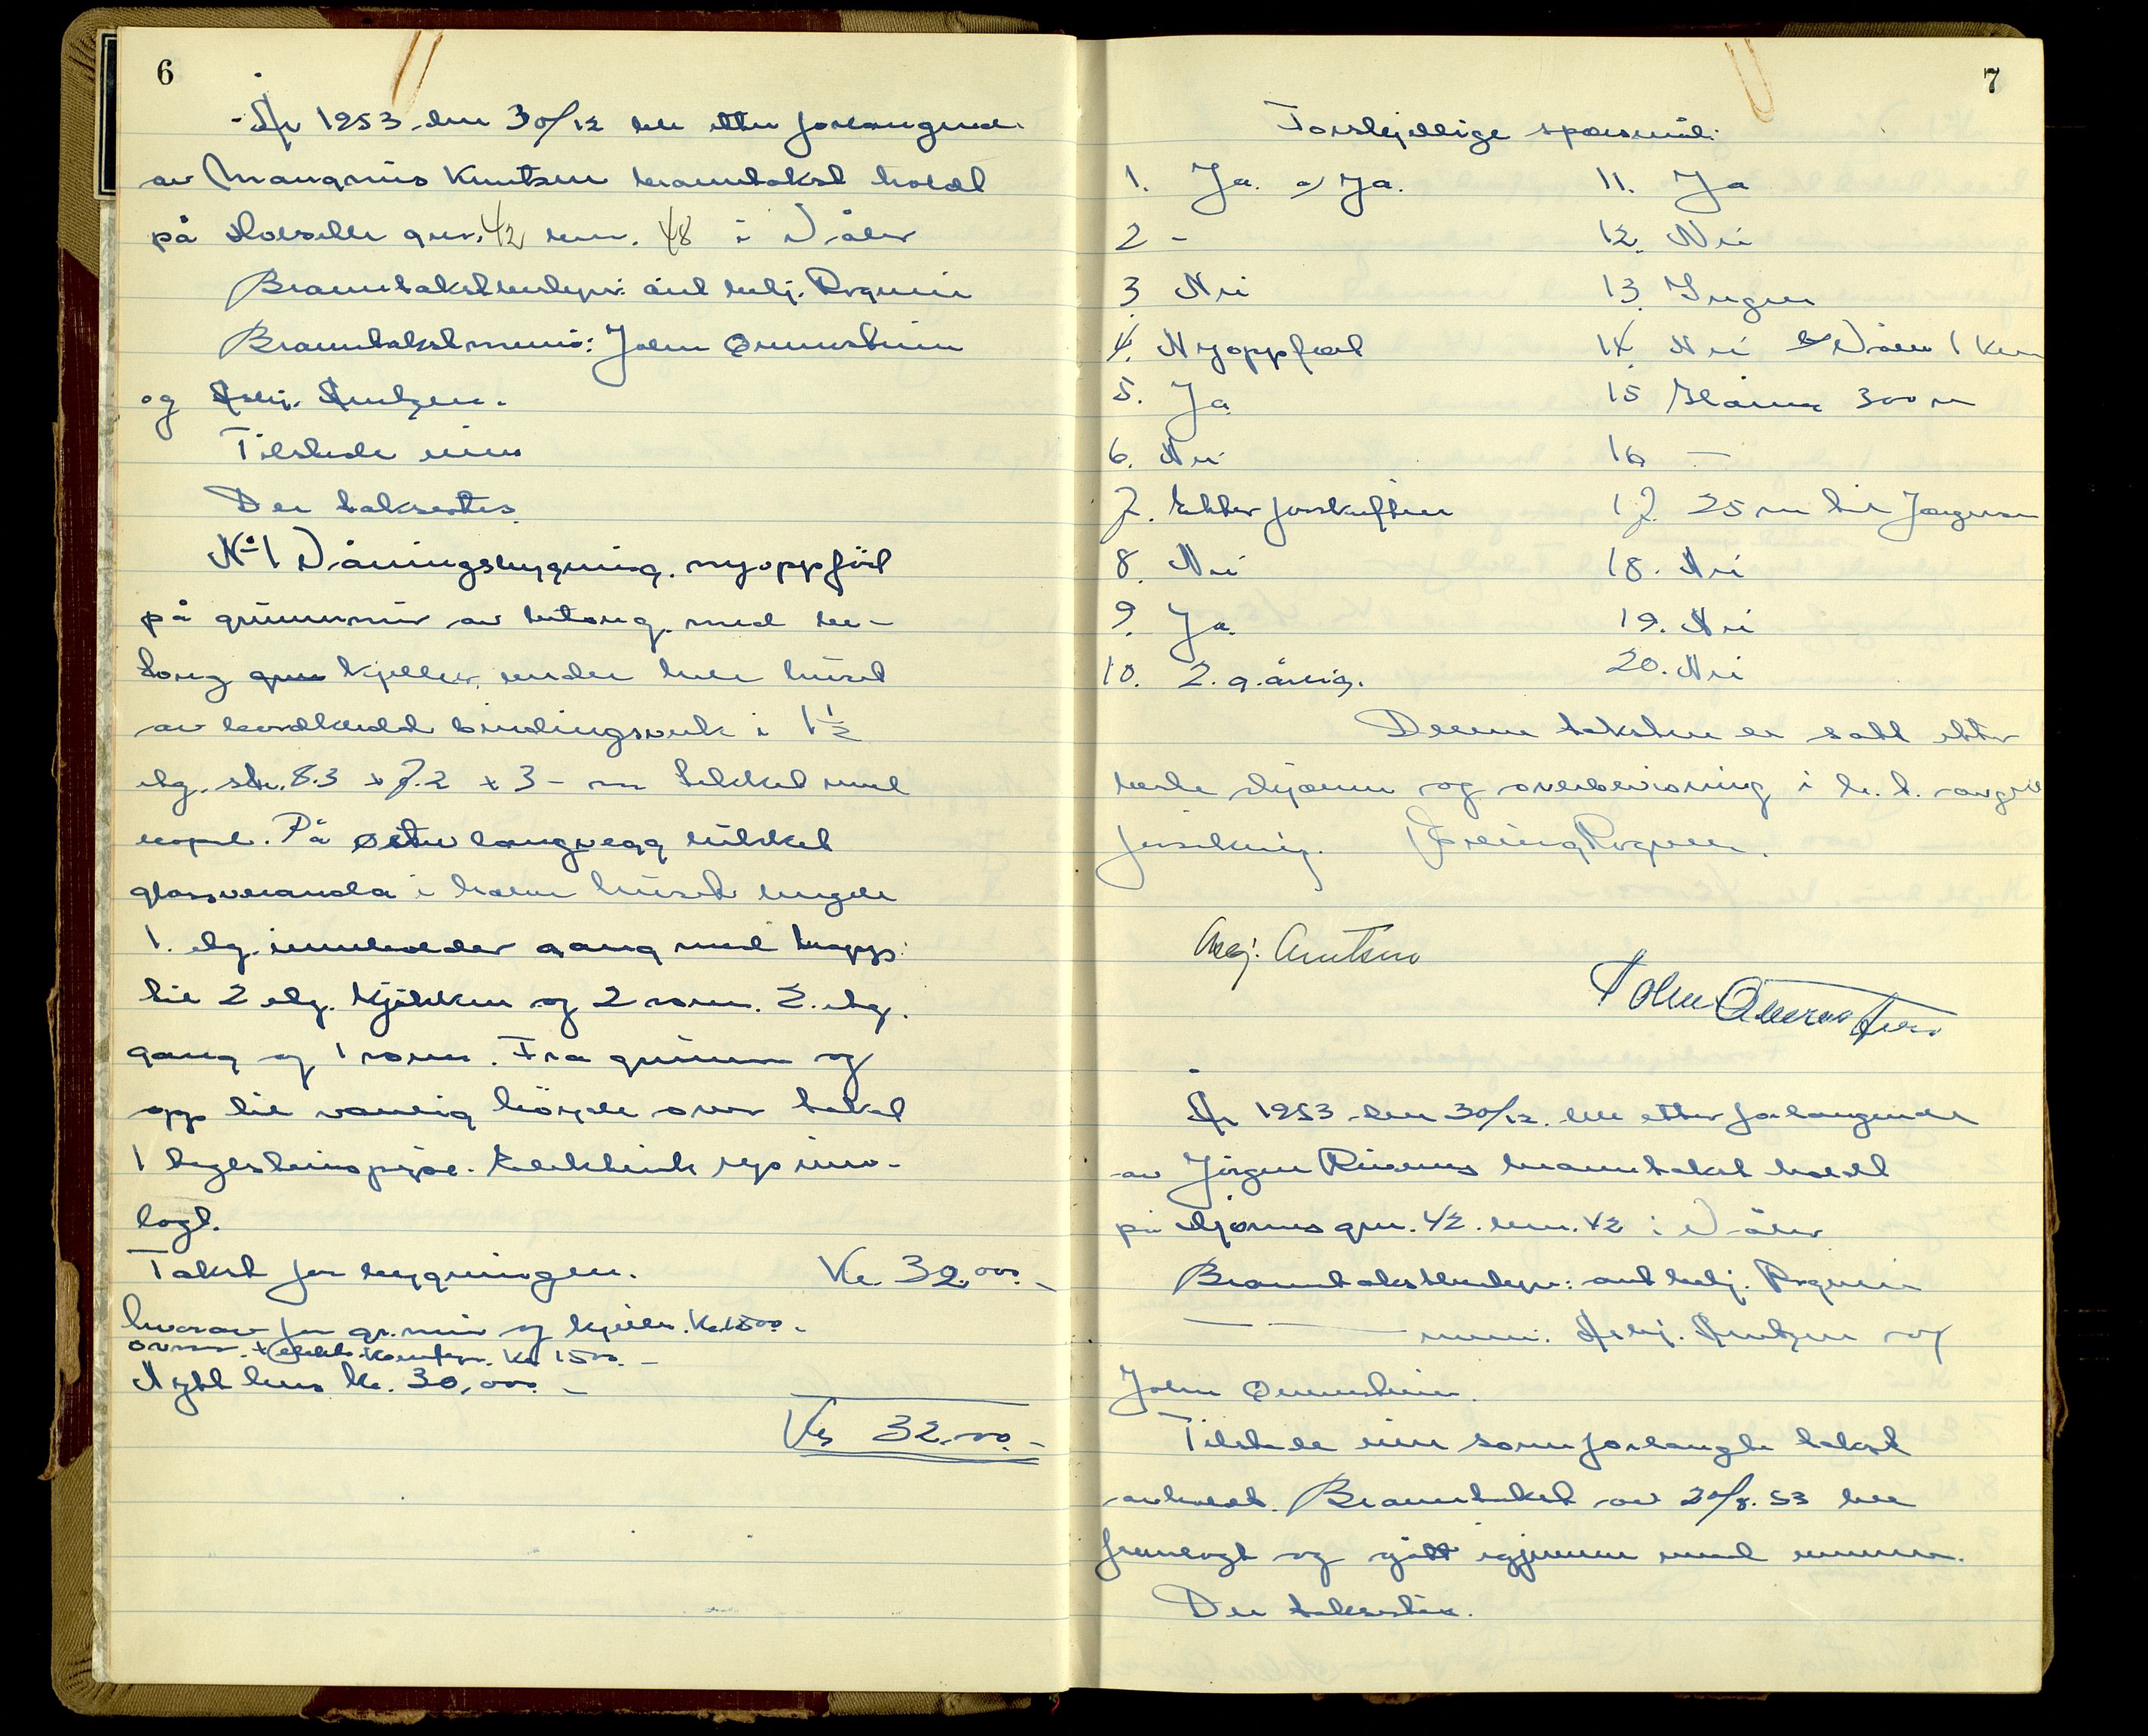 6
År 1953 den 30/12 ble etter forlangende
av Magnus Knutsen branntakst holdt
på gnr. 42 bnr. 48 i Våler
Branntakstbestyrer: Rognlie
Branntakstmenn: John Ormerstein
og Asbj. Arntzen.
Tilstede eieren
Der takseertes
No 1 Våningsbygning. nyoppført
på grunnmur av betong. med be-
tong kjeller under hele huset
av bordkledd bindingsverk i 1½
etg. str. 8.3 x 7.2 x 3 - m tekket med
På østre langvegg utbikket
glassveranda i halve husets lengde
1. etg. inneholder gang med trapp
til 2 etg. kjökken og 2 rom. 2. etg.
gang og 1 rom. Fra grunn og
opp til vanlig höyde over taket
1 teglsteinspipe. Elektrisk lys inn-
lagt.
Takst for bygningen. Kr 32.000.-
hvorav for gr.mur og kjeller. Kr. 1500.-
ovner + elektr. komfyr. Kr. 1500.-
Nytt hus kr. 30,000.-
Kr 32.000.-
7
Forskjellige spörsmål:
1. Ja. a) Ja.
2 -
3 Nei
4. Nyoppført
5. Ja
6. Nei
7. Etter forskriften
8. Nei
9. Ja.
10. 2. g. årlig.
11. Ja
12. Nei
13. Ingen
14. Nei Våler 1 km
15 300 m
16 -
17 25 m til
18. Nei
19. Nei
20. Nei
Denne taksten er satt etter
beste skjønn og overbevisning i h. t. avgitt
forsikring. Rognlie.
Asbj. Arntsen
John Ormerstein
År 1953 den 30/12. ble etter forlangende
av Jörgen branntakst holdt
på gnr. 42. bnr. 42 i Våler
Branntakstbestyrer: Rognlie
— — menn. Asbj. Arntzen og
John Ormerstein.
Tilstede eier som forlangte takst
avholdt. Branntakst av 20/8. 53 ble
fremlagt og gått igjennom med
Der takseertes.